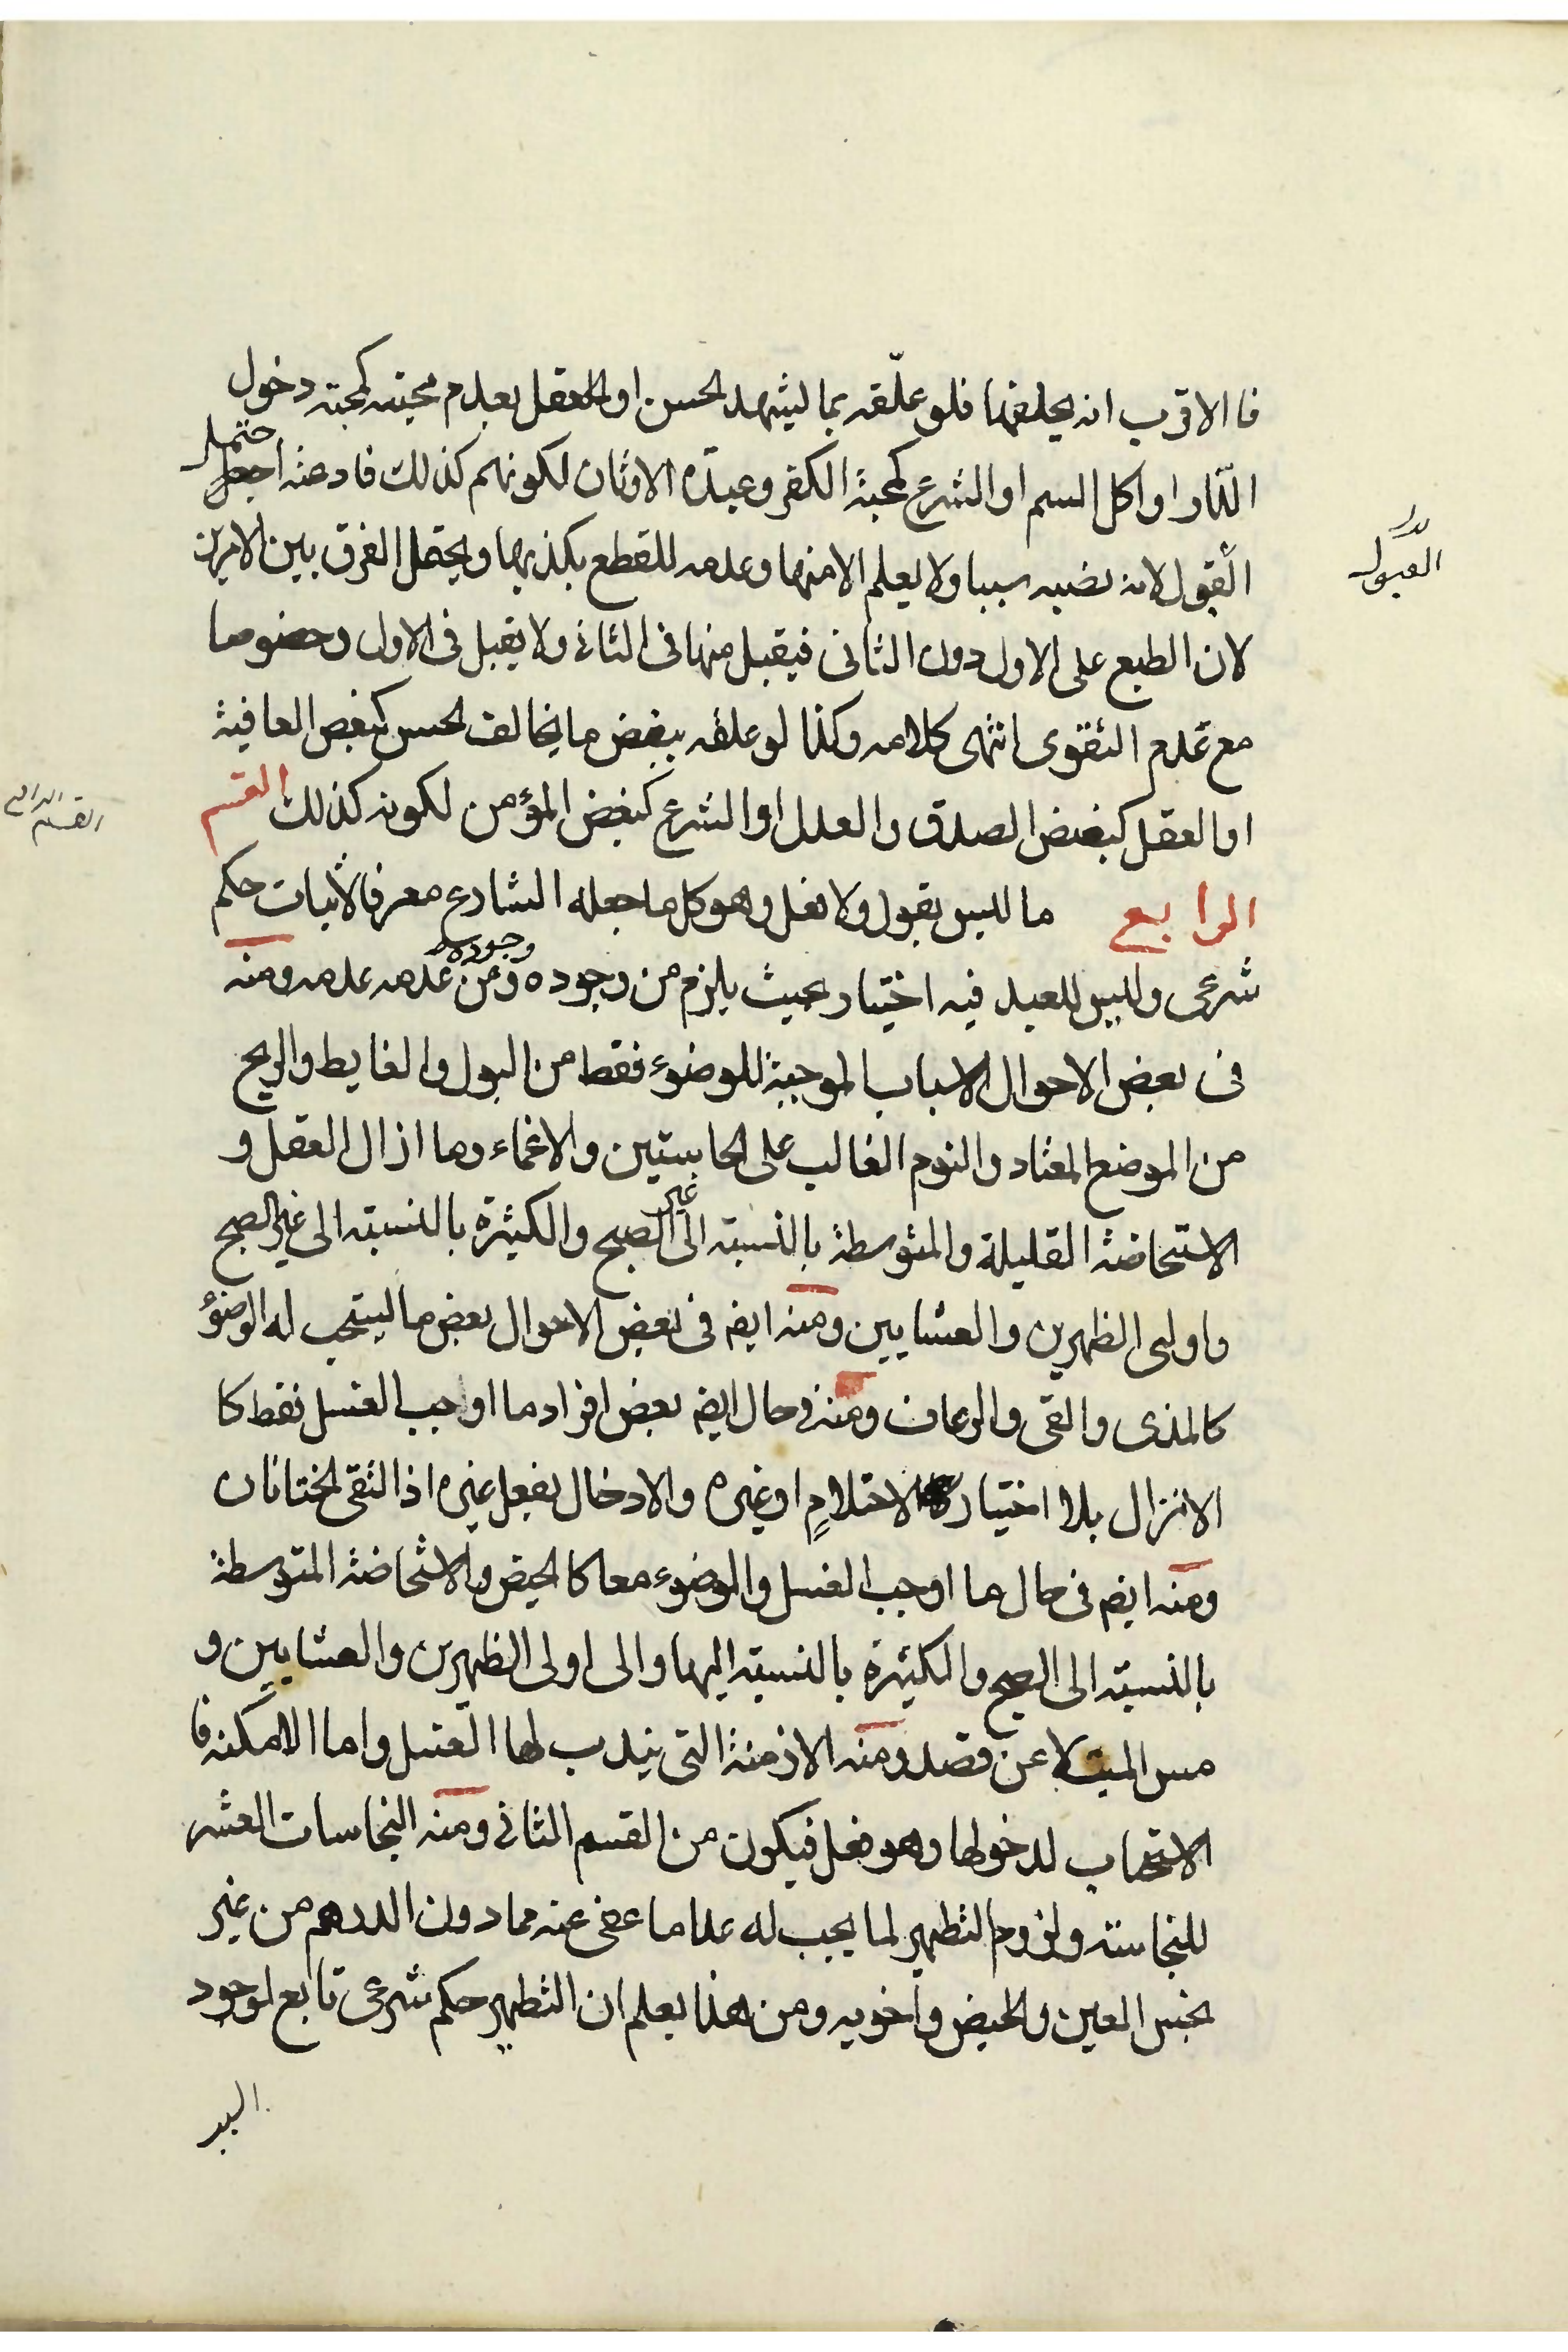 فا الاقرب انه يحلفها فلو علّقه بما ليشهد الحسن او العقل بعدم محبته كمحبته دخول
النّار او اكل السم او الشرع كمحبة الكفر وعبدّه الاوثان لكونهم كذلك فادعته احتمل
القبول لانه نصبه سببا ولا يعلم الا منها وعدمه للقطع بكذبها ويحتمل الفرق بين الامرين
لان الطبع على الاول دون الثانى فيقبل منها فى الثانى ولا يقبل فى الاول وخصوصا
مع عدم التقوى انتهى كلامه وكذا لو علقه ببغض ما يخالف الحسن كبغض العافية
او العقل كبغض الصدق والعدل او الشرع كبغض المؤمن لكونه كذلك القسم
الرابع ما ليس بقول ولا فعل وهو كل ما جعله الشارع معرفا لاثبات حكم
شرعى وليس للعبد فيه اختيار بحيث يلزم من وجوده وجوده ومن عدمه عدمه ومنه
فى بعض الاحوال الاسباب الموجبة للوضوء فقط من البول والغايط والريح
من الموضع المعتاد والنوم الغالب على الحاستين والاغماء وما ازال العقل و
الاستحاضة القليلة والمتوسطة بالنسبته الى غير الصبح والكثيرة بالنسبته الى غير الصبح
واولى الظهرين والعشايين ومنه ايضم فى بعض الاحوال بعض ما ليستحب له الوضوُ
كالمذى والقى والرعاف ومنه فى حال ايضم بعض افراد ما اوجب الغسل فقط كا
الانزال بلا اختيار لاحتلامٍ او غيره والادخال بفعل غيره اذا التقى الختانان
ومنه ايضم فى حال ما اوجب الغسل والوضوء معا كا لحيض والاستحاضة المتوسطة
بالنسبته الى الصبح والكثيرة بالنسبته اليها والى اولى الظهرين والعشايين و
مس الميت لا عن قصد ومنه الازمنة التى يندب لها الغسل واما الامكنه فا
الاستحباب لدخولها وهو فعل فيكون من القسم الثانى ومنه النجاسات العشر
للنجاسته ولزوم التطهير لما يجب له عدا ما عفى عنه مما دون الدرهم من غير
نجس العين والحيض واخويه ومن هذا يعلم ان التطهير حكم شرعى تابع لوجود
القبول
القسم الرابع